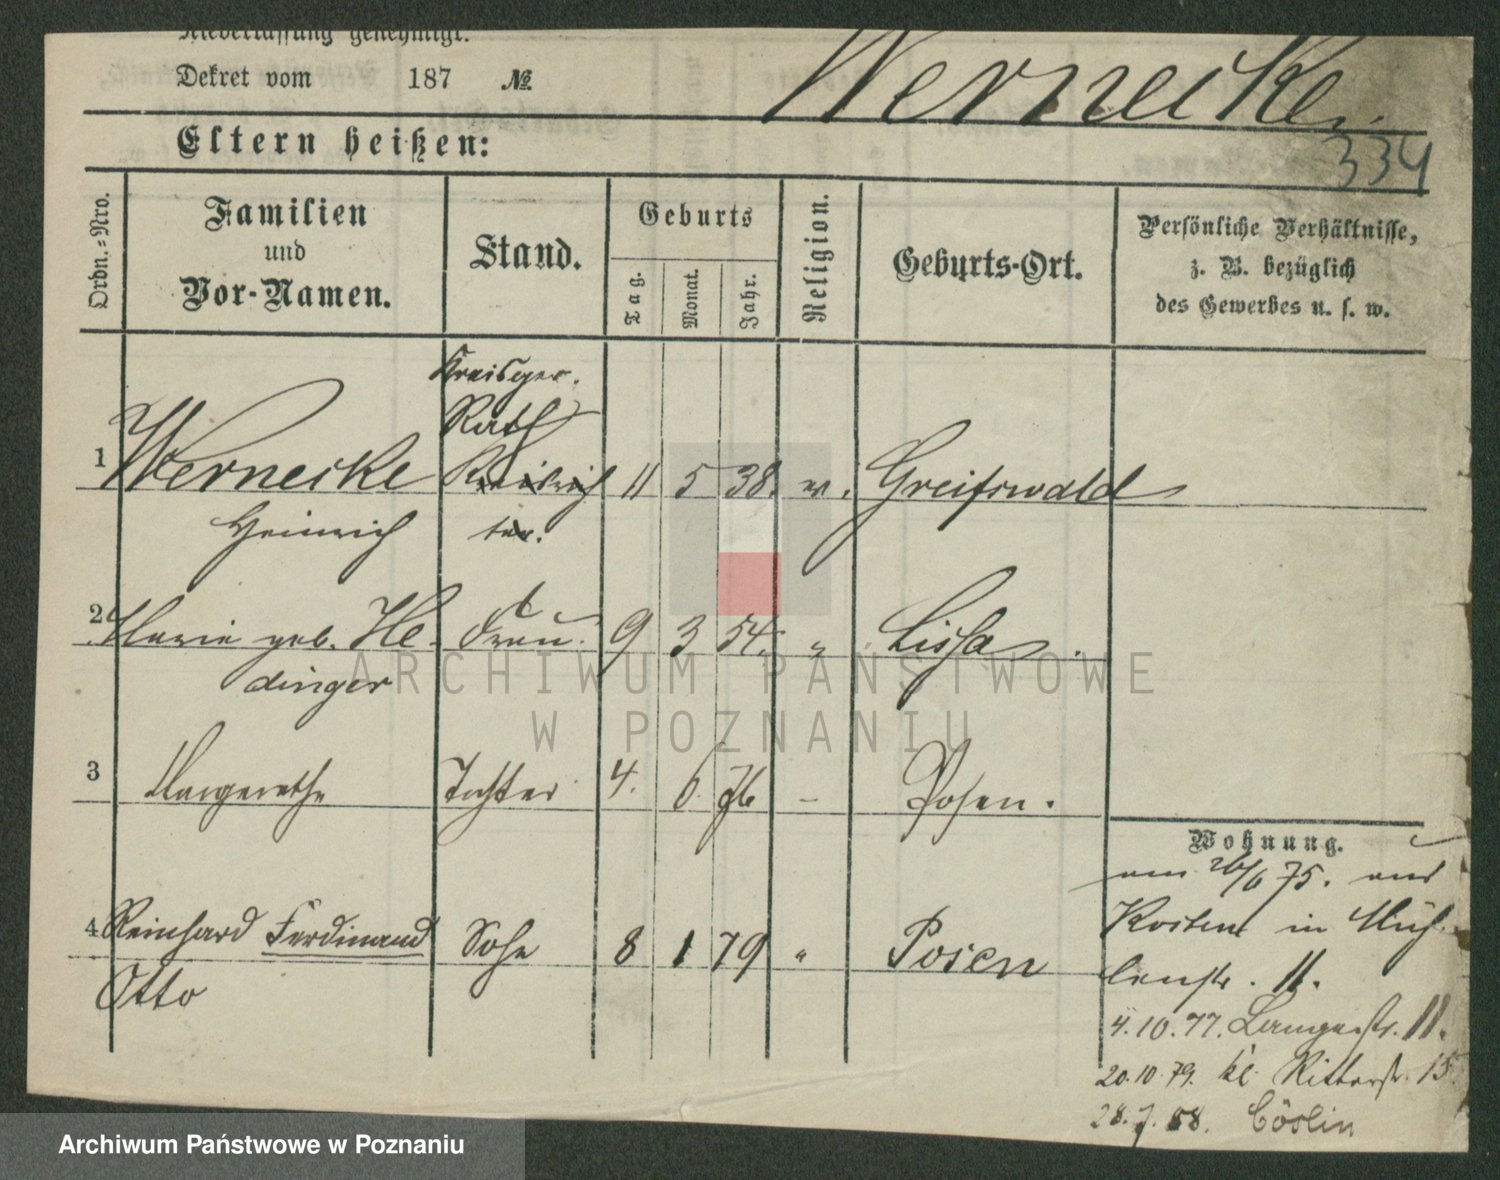 Niederlassung genehmigt.
Dekret vom 187 №
Wernecke.
334
Eltern heißen:
Ordn.-Nro.
Familien
und
Vor-Namen.
Stand.
Geburts
Tag.
Monat.
Jahr.
Religion.
Geburts-Ort.
Persönliche Verhältnisse,
z. B. bezüglich
des Gewerbes u. s. w.
Kreisger.
Rath
1 Wernecke Kreisrich 11 5 38. ev. Greifswald
Heinrich ter.
2 Marie geb. He- Frau 9 3 54. " Lissa.
dinger
3 Margarethe Tochter 4. 6. 76 – Posen.
4 Reinhard Ferdinand Sohn 8 1 79 " Posen
Otto
Wohnung.
am 26/6 75. aus
Kosten in Müh-
lenstr. 11.
4.10.77. Langestr. 11.
20.10.79. kl. Ritterstr. 15
28.7.88. Cöslin
ARCHIWUM PAŃSTWOWE
W POZNANIU
Archiwum Państwowe w Poznaniu